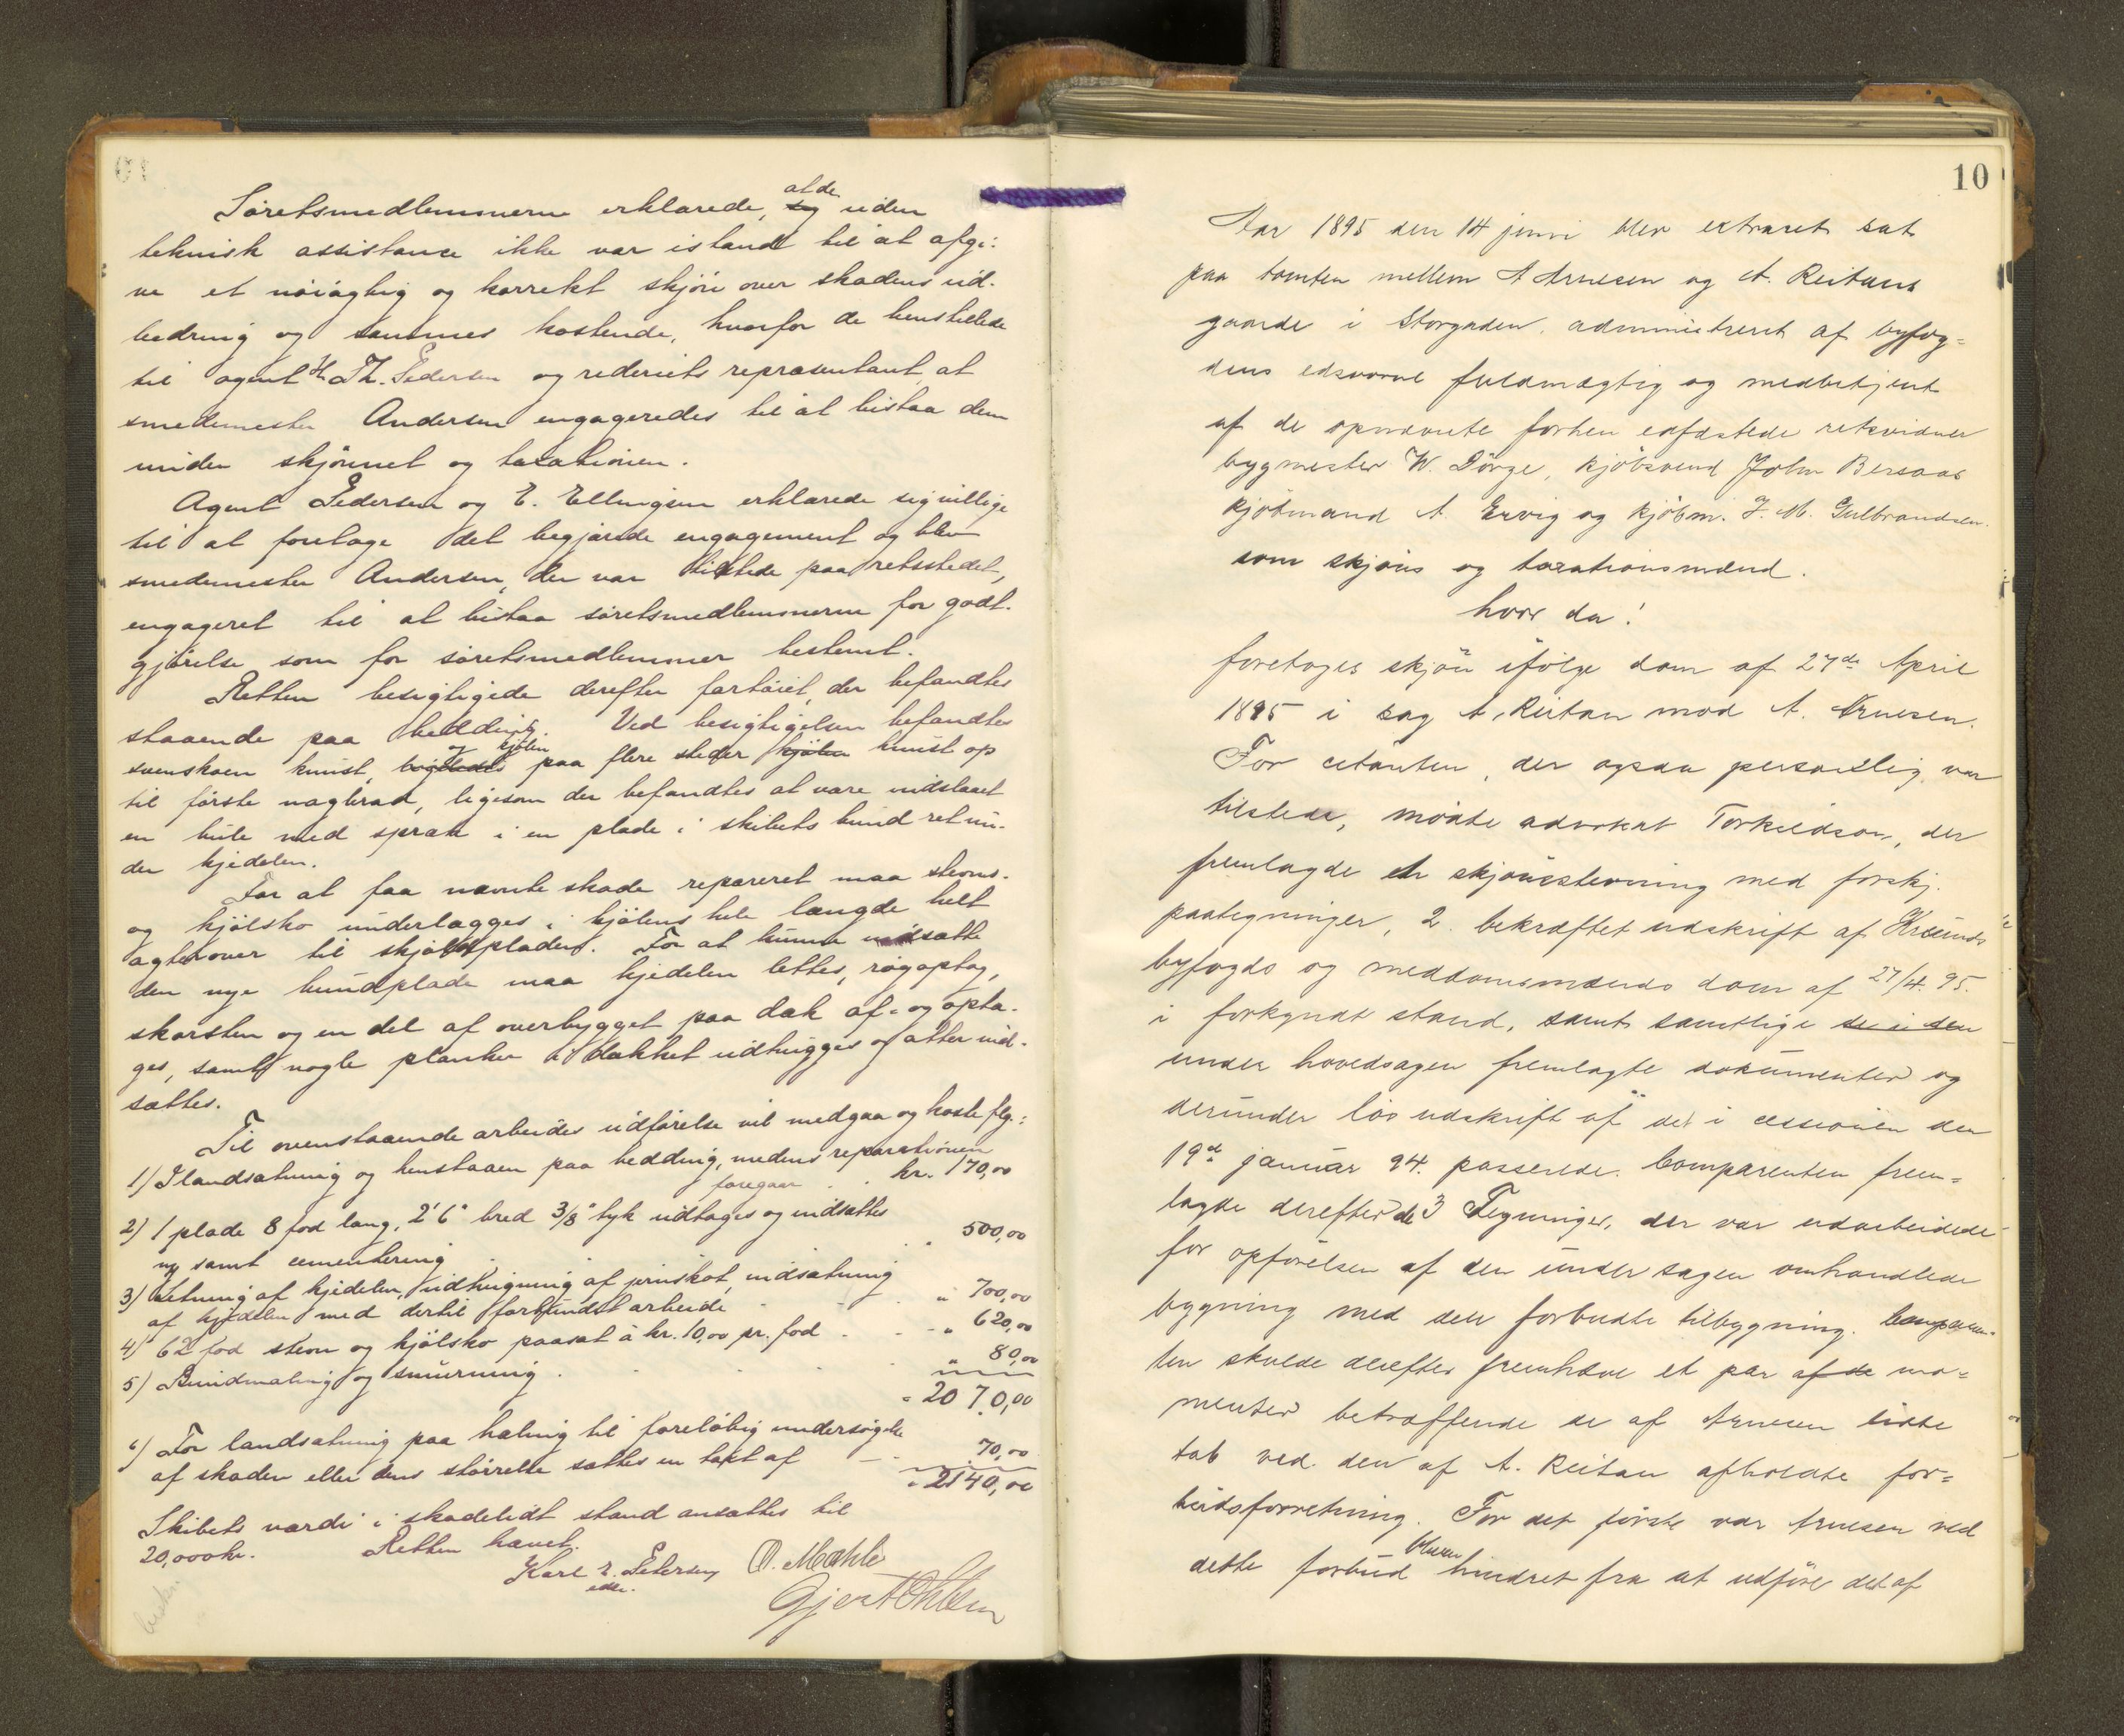 Söretsmedlemmerne erklærede, at de uden
teknisk assistance ikke var istand til at afgi-
ve et nöiagtig og korrekt skjön over skadens ud-
bedring og sammes kostende, hvorfor de henstillede
til agent H Th. Pedersen og rederiets repræsentant at
smedemester Andersen engageredes til at bistaa dem
under skjönnet og taxationen.
Agent Pedersen og E. Ellingsen erklærede sig villige
til at foretage det begjærede engagement og blev
smedemester Andersen, der var tilstede paa retsstedet,
engageret til at bistaa söretsmedlemmerne for godt-
gjörelse som for söretsmedlemmer bestemt.
Retten besigtigede derefter fartöiet, der befandtes
staaende paa bedding. Ved besigtigelsen befandtes
svenskoen knust, og kjölen paa flere steder kjölen knust op
til förste naglerad, ligesom der befandtes at være indslaaet
en bule med spræk i en plade i skibets bund ret un-
der kjedelen.
For at faa nævnte skade repareret maa stevns-
og kjölsko underlægges i kjölens hele længde helt
agterover til skjoldpladen. For at kunne indsætte
den nye bundplade maa kjedelen lettes, rögoptag,
skorsten og en del af overbygget paa dæk af- og opta-
ges, samt nogle planker af dækket udhugges og atter ind-
sættes.
Til ovenstaaende arbeides udförelse vil medgaa og koste flg.:
1) Ilandsætning og henstaaen paa bedding, medens reparationen
foregaar . . kr. 170,00
2) 1 plade 8 fod lang, 2'6" bred 3/8" tyk udtages og indsættes
ny samt cementering . . " 500,00
3) Letning af kjedelen, udhugning af jernskot, indsætning
af kjedelen med dertil forbundet arbeide . . " 700,00
4) 62 fod stevn og kjölsko paasat à kr. 10,00 pr. fod . . " 620,00
5) Bundmaling og smurning . . . " 80,00
= 2070,00
6) For landsætning paa haling til foreløbig undersögelse
af skaden eller dens störrelse sættes en takt af — . 70,00
= 2140,00
Skibets værdi i skadelidt stand ansættes til
20,000 kr. Retten hævet.
Karl E. Petersen O. Mæhle
edsv.
Gjert Ohlsen
10
Aar 1895 den 14 juni blev extraret sat
paa tomten mellem A Arnesen og A. Reitans
gaarde i Storgaden, administreret af byfog=
dens edsvorne fuldmægtig og medbetjent
af de opnævnte forhen edfæstede retsvidner
bygmester W. Dörge, kjöbmand John Bersaas
kjöbmand A. Ervig og kjöbm. J. M. Gulbrandsen.
som skjöns og taxationsmænd.
hvor da!
foretoges skjön ifölge dom af 27de April
1895 i sag A. Reitan mod A. Arnesen.
For citanten, der ogsaa personlig var
tilstede, mödte advokat Torkildson, der
fremlagde en skjönsstevning med forskj.
paategninger, 2. bekræftet udskrift af Krsunds
byfogds og meddomsmænds dom af 27/4.95.
i forkyndt stand, samt samtlige de i den
under hovedsagen fremlagte dokumenter og
derunder lös udskrift af det i cessionen den
19de januar 94. passerede. Comparenten frem=
lagde derefter de 3 Tegninger, der var udarbeidede
for opförelsen af den under sagen omhandlede
bygning med den forbudte tilbygning. Comparen-
ten skulde derefter fremhæve et par af de mo=
menter betræffende de af Arnesen lidte
tab ved den af A. Reitan afholdte for=
budsforretning. For det förste var Arnesen ved
dette forbud bleven hindret fra at udföre det af